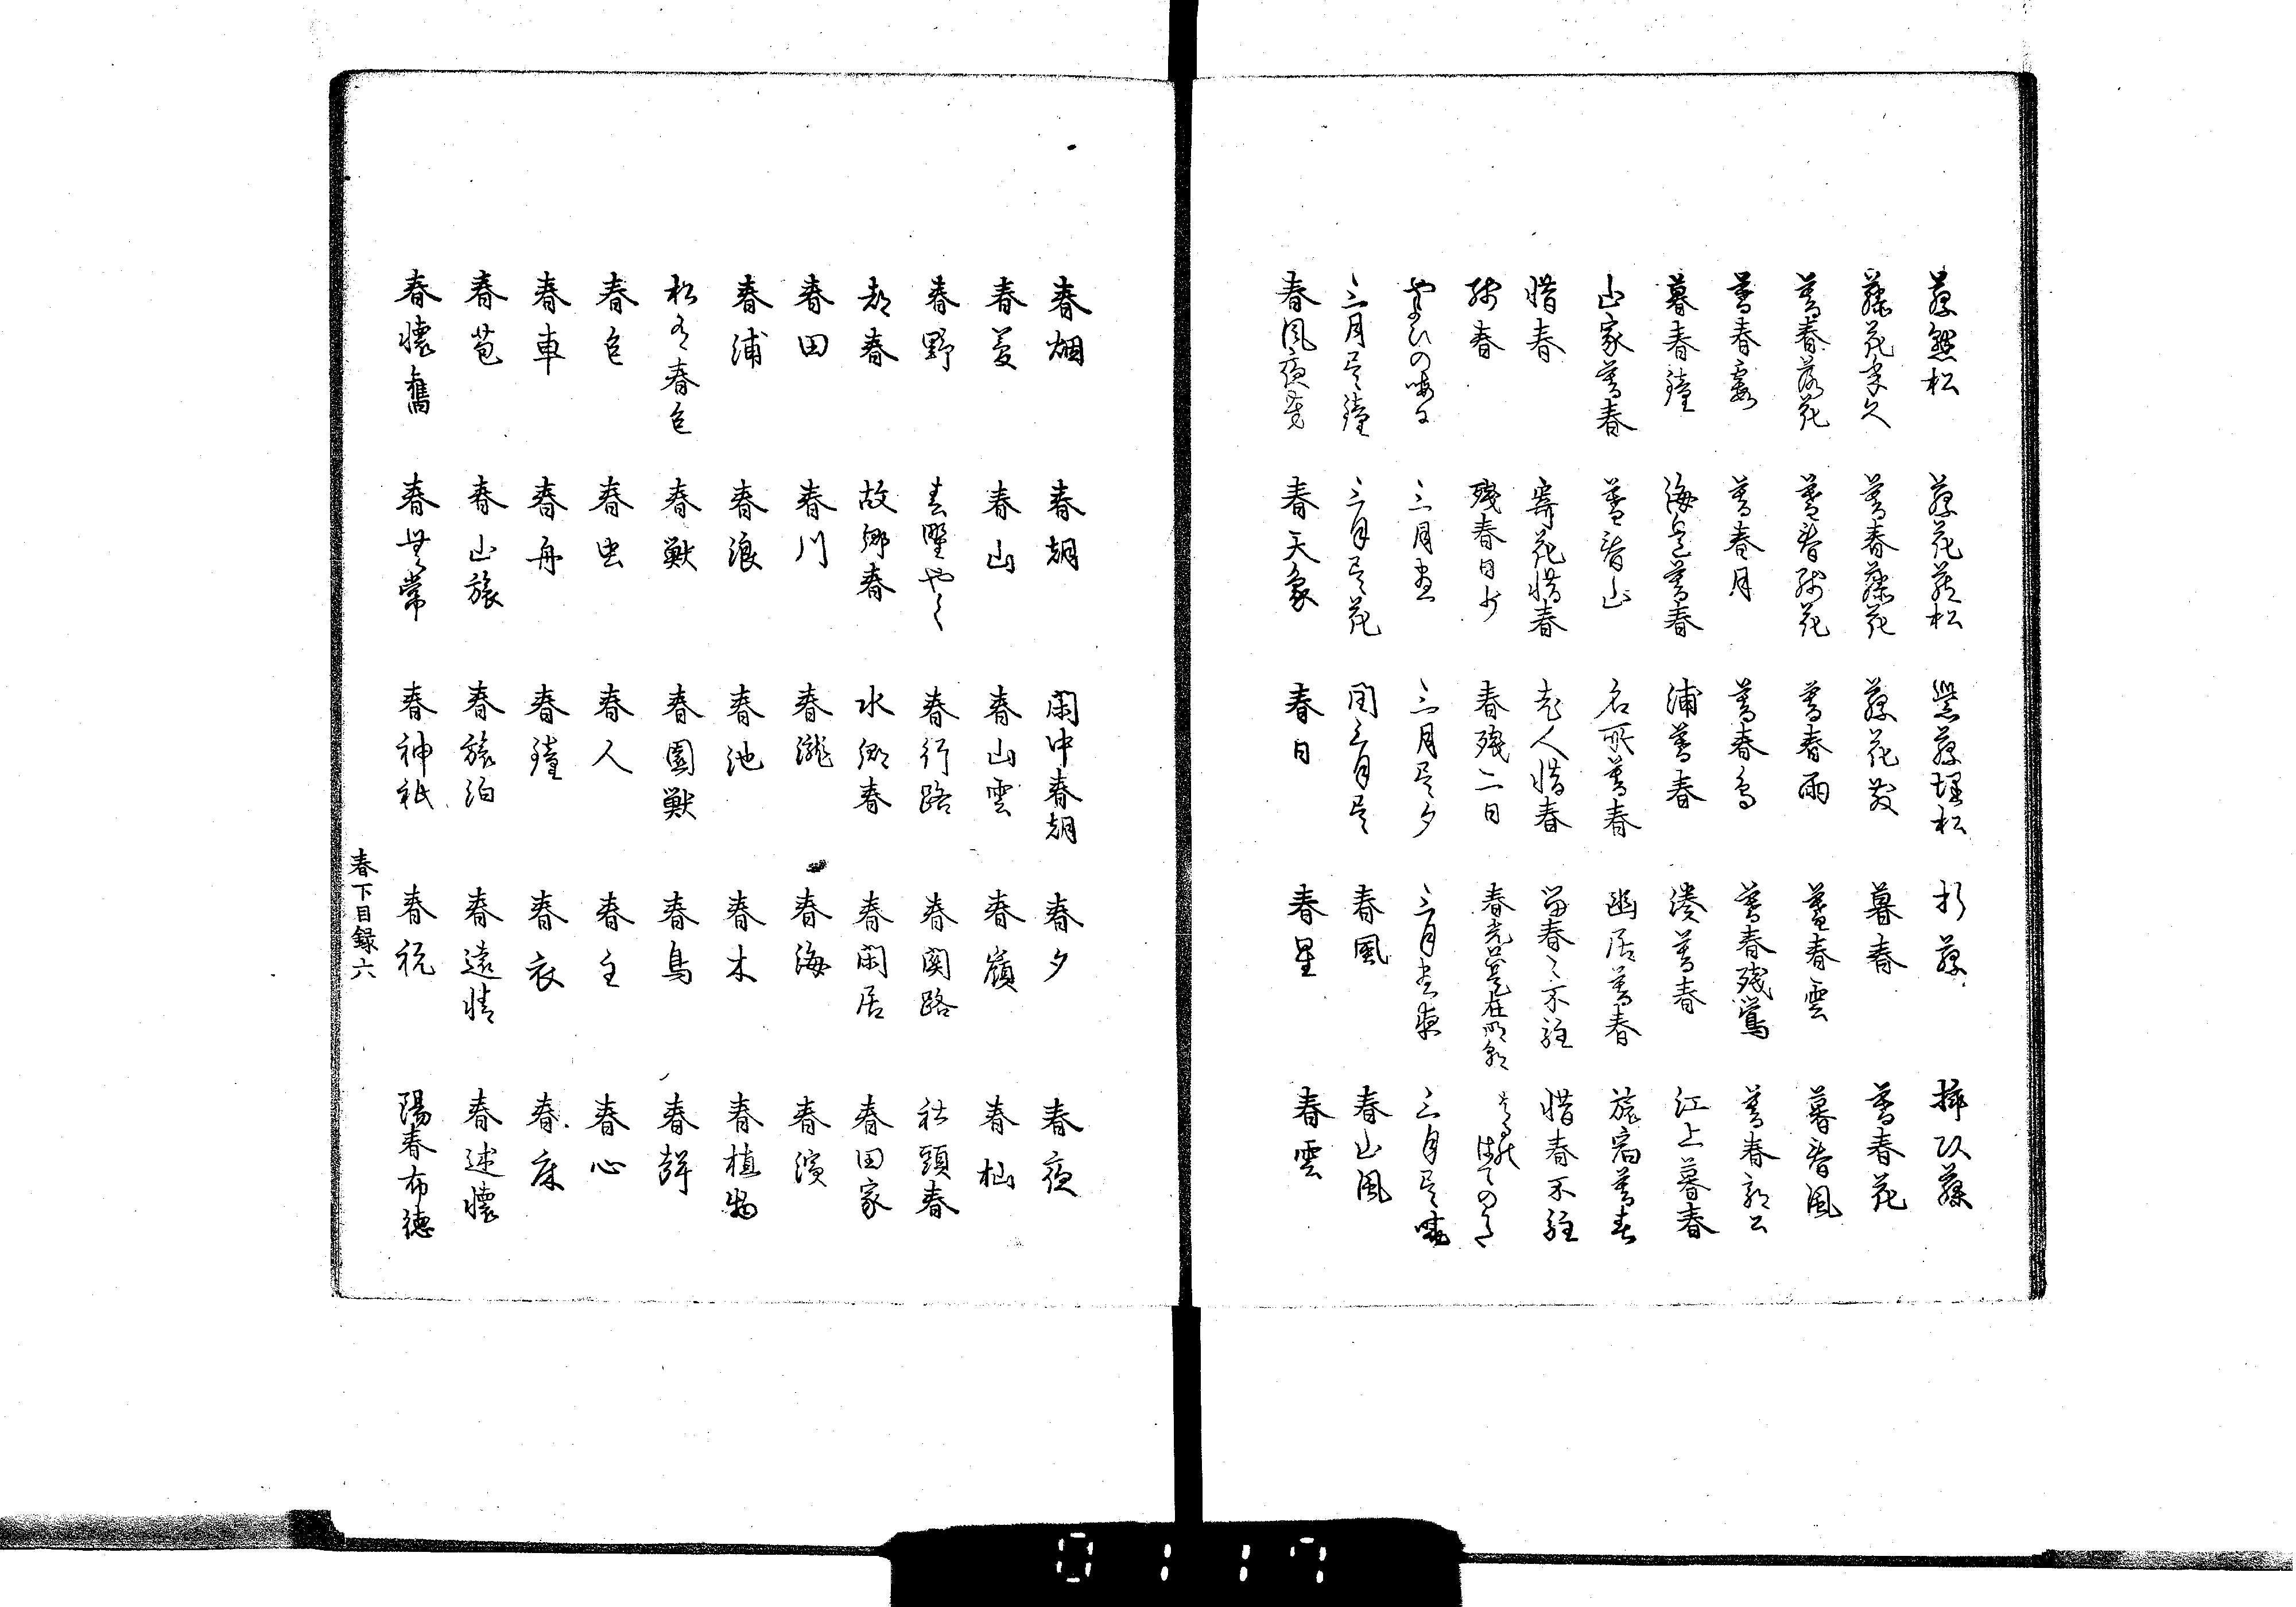 藤懸松 藤花薮松 紫藤埋松 折藤 挿頭藤
藤花年久 暮春藤花 藤花散 暮春 暮春花
暮春落花 暮春残花 暮春雨 暮春雲 暮春風
暮春霞 暮春月 暮春鳥 暮春残鶯 暮春郭公
暮春鐘 海辺暮春 浦暮春 湊暮春 江上暮春
山家暮春 暮春山 名所暮春 幽居暮春 旅宿暮春
惜春 寄花惜春 老人惜春 留春々不駐 惜春不駐
残春 残春日少 春残二日 春光只是在明朝 はてのき
やよひの晦日 三月尽 三月尽夕 三月尽夜 三月尽暁
三月尽鐘 三月尽花 閏三月尽 春風 春山風
春風夜芳 春天象 春日 春星 春雲
春烟 春朝 閑中春朝 春夕 春夜
春夢 春山 春山雲 春嶺 春杣
春野 春野やく 春行路 春関路 社頭春
都春 故郷春 水郷春 春閑居 春田家
春田 春川 春滝 春海 春浜
春浦 春浪 春池 春木 春植物
松有春色 春獣 春園獣 春鳥 春声
春色 春虫 春人 春主 春心
春車 春舟 春鐘 春衣 春床
春苞 春山旅 春旅泊 春遠情 春述懐
春懐旧 春無常 春神祇 春祝 陽春布徳
春下目録 六
0117